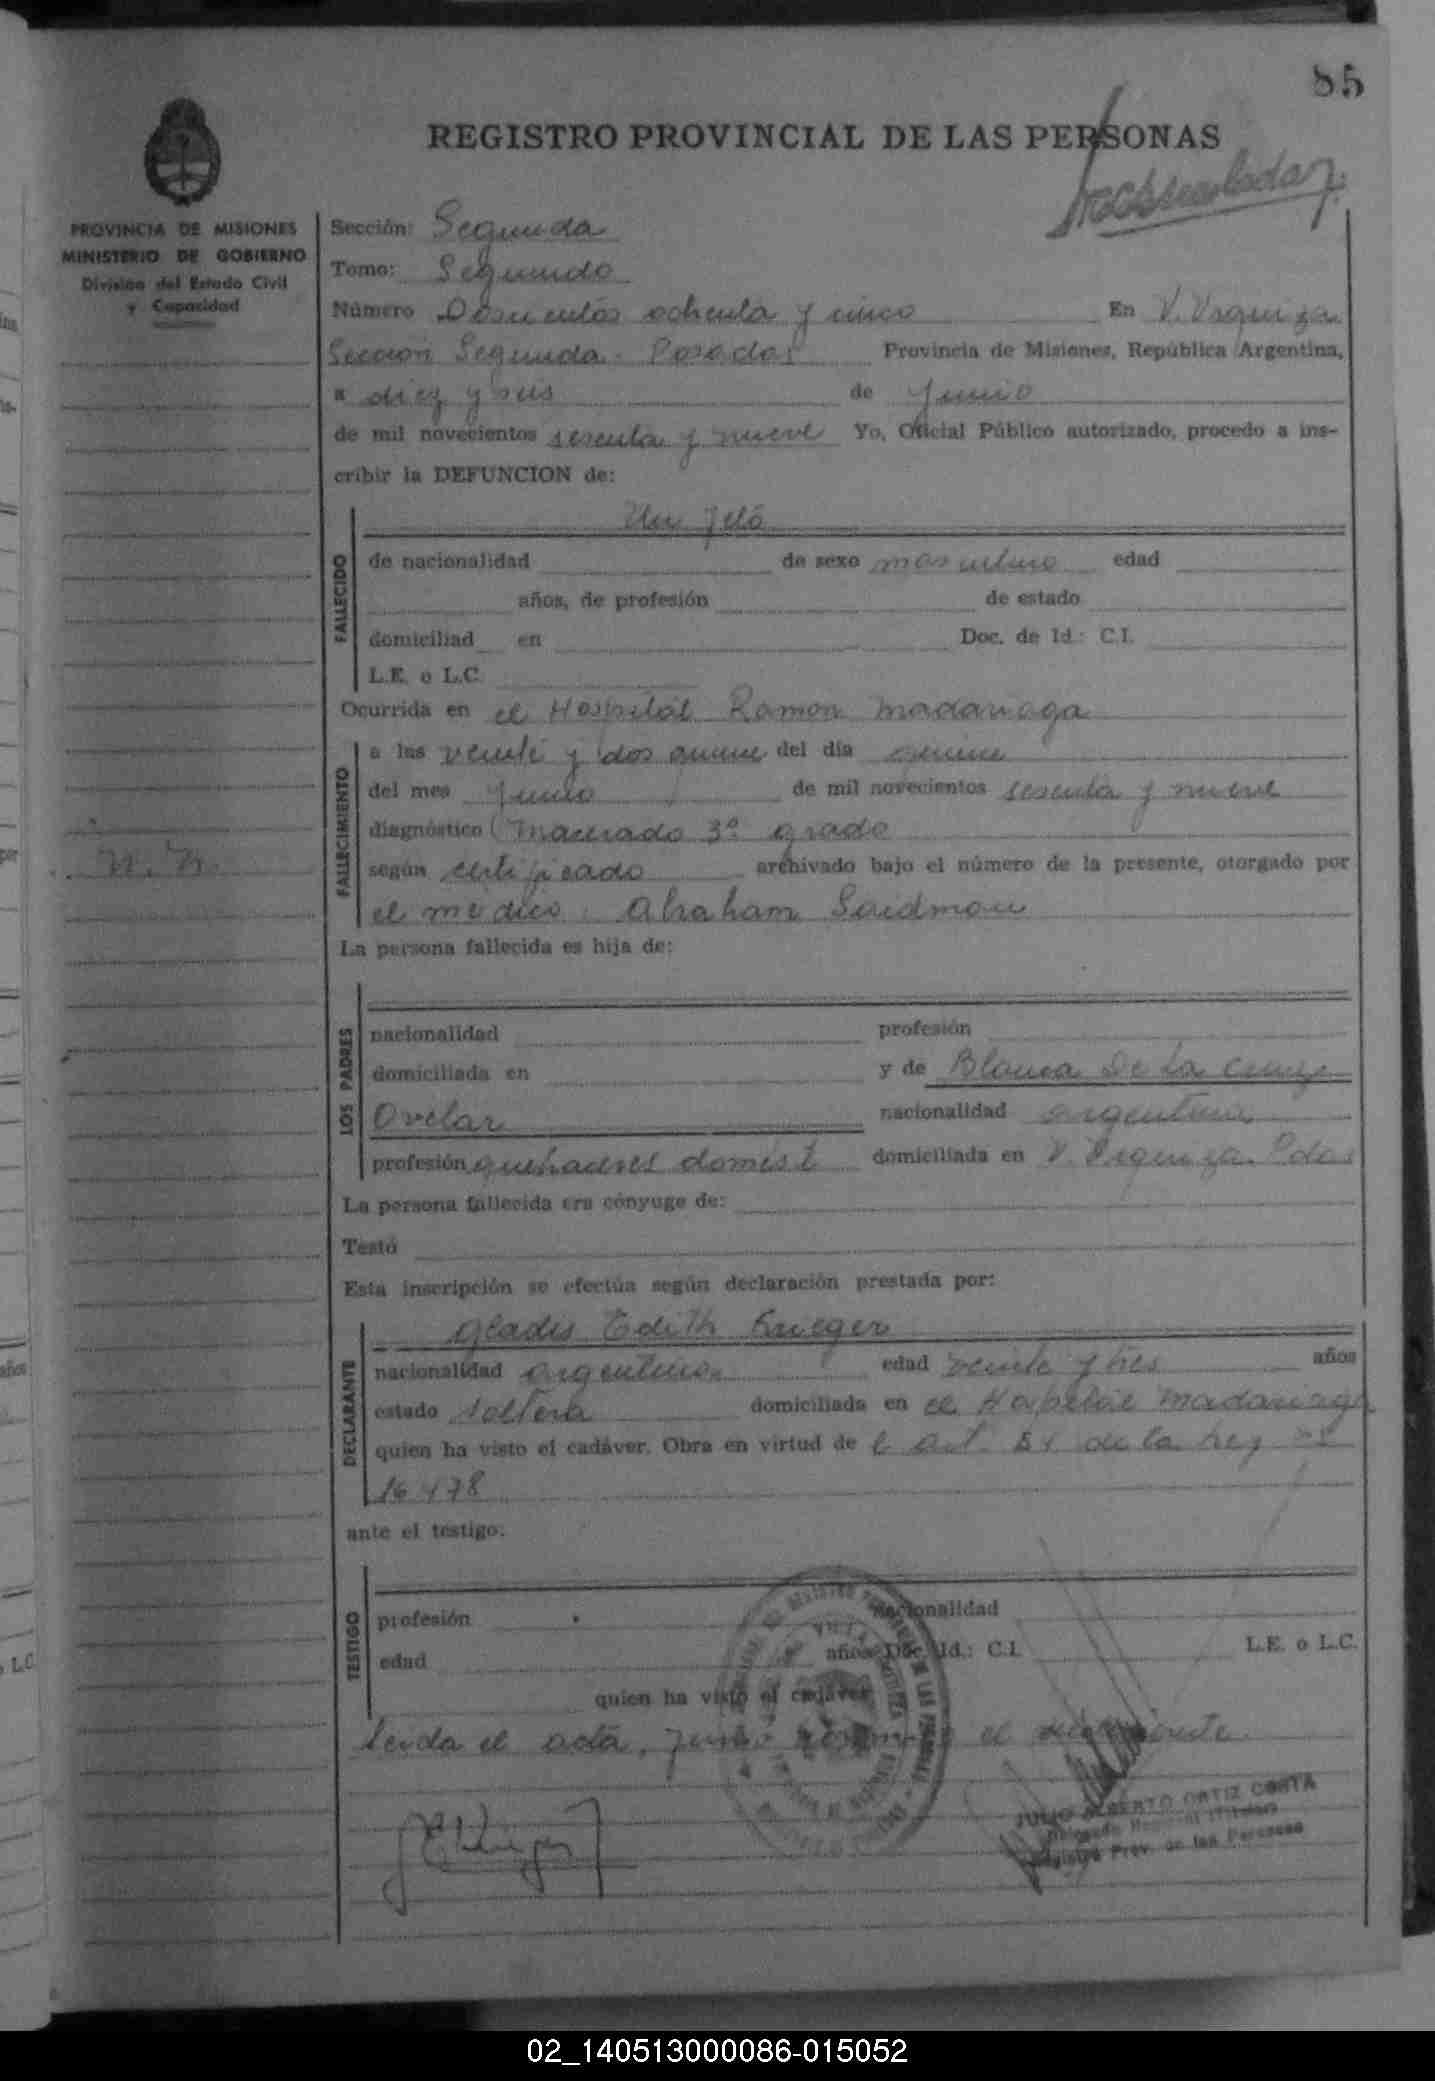 85
REGISTRO PROVINCIAL DE LAS PERSONAS
PROVINCIA DE MISIONES
MINISTERIO DE GOBIERNO
División del Estado Civil
y Capacidad
Sección: Segunda
Tomo: Segundo
Número Doscientos ochenta y cinco En V. Urquiza
Sección Segunda. Posadas Provincia de Misiones, República Argentina,
a diez y seis de Junio
de mil novecientos sesenta y nueve Yo, Oficial Público autorizado, procedo a ins-
cribir la DEFUNCION de:
Un Feto
FALLECIDO
de nacionalidad de sexo masculino edad
años, de profesión de estado
domiciliad en Doc. de Id.: C.I.
L.E. o L.C.
Ocurrida en el Hospital Ramon Madariaga
FALLECIMIENTO
a las veinte y dos quince del día quince
del mes Junio de mil novecientos sesenta y nueve
diagnóstico Macerado 3º grado
N. N.
según certificado archivado bajo el número de la presente, otorgado por
el medico Abraham Saidman
La persona fallecida es hija de:
LOS PADRES
nacionalidad profesión
domiciliada en y de Blanca De La Cruz
Ovelar nacionalidad argentina
profesión quehaceres domést domiciliada en V. Urquiza. Pdas
La persona fallecida era cónyuge de:
Testó
Esta inscripción se efectúa según declaración prestada por:
Gladis Edith Krieger
DECLARANTE
nacionalidad argentina edad veinte y tres años
estado soltera domiciliada en el Hospital Madariaga
quien ha visto el cadáver. Obra en virtud de l Art. 51 de la Ley Nº
16478
ante el testigo:
TESTIGO
profesión nacionalidad
edad años Doc. Id.: C.I. L.E. o L.C.
quien ha visto el cadáver
Leida el acta, el
JULIO ALBERTO ORTIZ COSTA
Delegado Regional Titular
Registro Prov. de las Personas
02_140513000086-015052